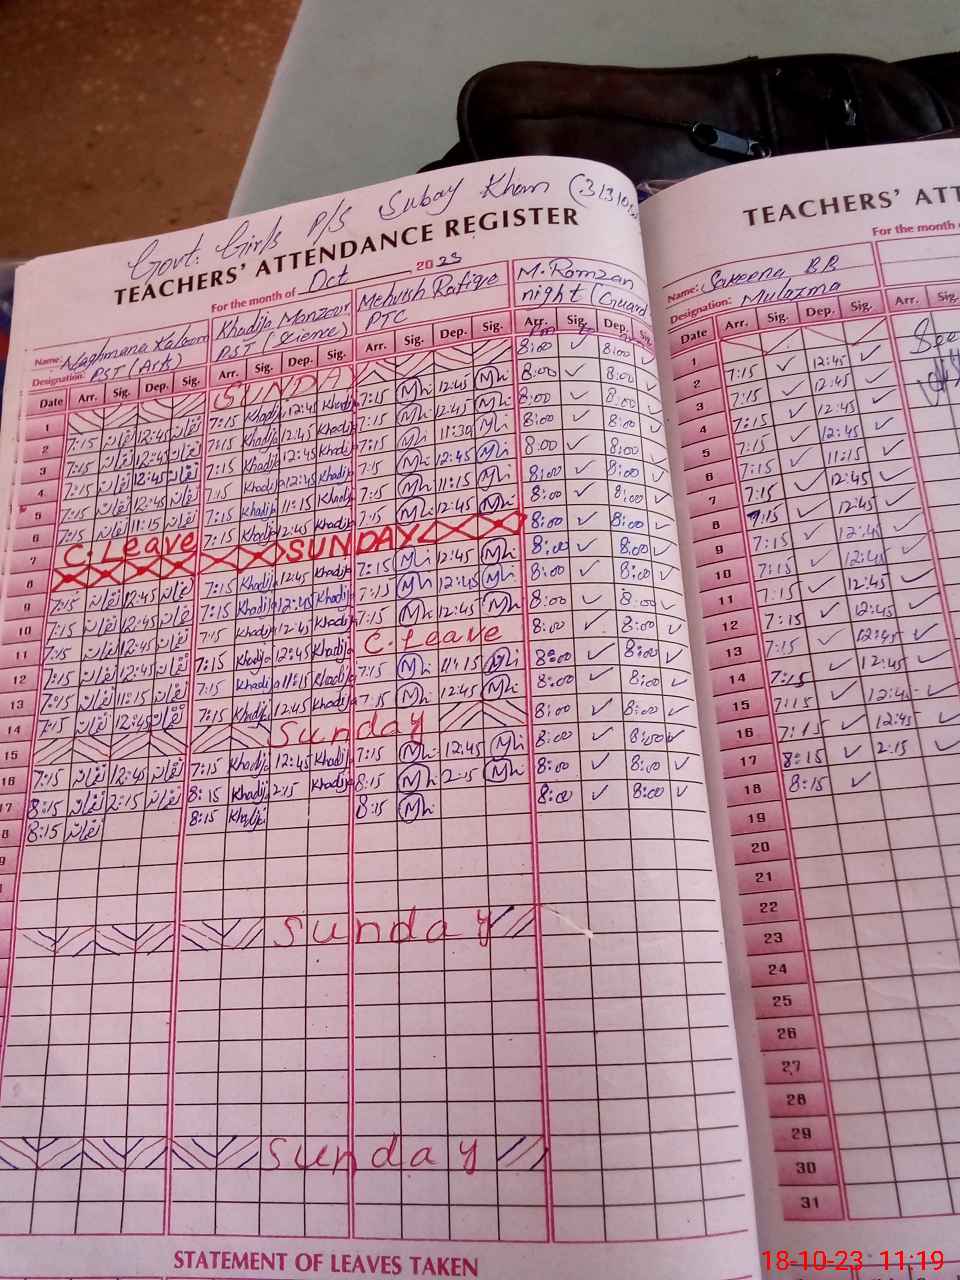 Govt: Girls P/S Subay Khan (31310
TEACHERS' ATTENDANCE REGISTER
For the month of Oct 2023
Name: Naghmana Kalsoom Khadija Manzoor Mehvish Rafique M. Ramzan
Designation: PST (Art) PST (Science) PTC night (Guard
Date Arr. Sig. Dep. Sig. Arr. Sig. Dep. Sig. Arr. Sig. Dep. Sig. Arr. Sig. Dep. Sig.
1 SUNDA 8:00 ✓ 8:00 ✓
2 7:15 12:45 7:15 Khadija 12:45 Khadija 7:15 Mh 12:45 Mh 8:00 ✓ 8:00 ✓
3 7:15 12:45 7:15 Khadija 12:45 Khadija 7:15 Mh 12:45 Mh 8:00 ✓ 8:00 ✓
4 7:15 12:45 7:15 Khadija 12:45 Khadija 7:15 Mh 11:30 Mh 8:00 ✓ 8:00 ✓
5 7:15 12:45 7:15 Khadija 12:45 Khadija 7:15 Mh 12:45 Mh 8:00 ✓ 8:00 ✓
6 7:15 11:15 7:15 Khadija 11:15 Khadija 7:15 Mh 11:15 Mh 8:00 ✓ 8:00 ✓
7 C. Leave 7:15 Khadija 12:45 Khadija 7:15 Mh 12:45 Mh 8:00 ✓ 8:00 ✓
8 SUNDAY 8:00 ✓ 8:00 ✓
9 7:15 12:45 7:15 Khadija 12:45 Khadija 7:15 Mh 12:45 Mh 8:00 ✓ 8:00 ✓
10 7:15 12:45 7:15 Khadija 12:45 Khadija 7:15 Mh 12:45 Mh 8:00 ✓ 8:00 ✓
11 7:15 12:45 7:15 Khadija 12:45 Khadija 7:15 Mh 12:45 Mh 8:00 ✓ 8:00 ✓
12 7:15 12:45 7:15 Khadija 12:45 Khadija C. Leave 8:00 ✓ 8:00 ✓
13 7:15 11:15 7:15 Khadija 11:15 Khadija 7:15 Mh 11:15 Mh 8:00 ✓ 8:00 ✓
14 7:15 12:45 7:15 Khadija 12:45 Khadija 7:15 Mh 12:45 Mh 8:00 ✓ 8:00 ✓
15 Sunday 8:00 ✓ 8:00 ✓
16 7:15 12:45 7:15 Khadija 12:45 Khadija 7:15 Mh 12:45 Mh 8:00 ✓ 8:00 ✓
17 8:15 2:15 8:15 Khadija 2:15 Khadija 8:15 Mh 2:15 Mh 8:00 ✓ 8:00 ✓
8 8:15 8:15 Khadija 8:15 Mh 8:00 ✓ 8:00 ✓
Sunday
Sunday
STATEMENT OF LEAVES TAKEN
TEACHERS' ATT
For the month
Name: Sakeena BB
Designation: Mulazma
Date Arr. Sig. Dep. Sig. Arr. Sig.
1
2 7:15 12:45 ✓
3 7:15 ✓ 12:45 ✓
4 7:15 ✓ 12:45 ✓
5 7:15 ✓ 12:45 ✓
6 7:15 ✓ 11:15 ✓
7 7:15 ✓ 12:45 ✓
8 7:15 ✓ 12:45 ✓
9 7:15 ✓ 12:45 ✓
10 7:15 ✓ 12:45 ✓
11 7:15 ✓ 12:45 ✓
12 7:15 ✓ 12:45 ✓
13 7:15 ✓ 12:45 ✓
14 7:15 ✓ 12:45 ✓
15 7:15 ✓ 12:45 ✓
16 7:15 ✓ 12:45 ✓
17 8:15 ✓ 2:15 ✓
18 8:15 ✓
19
20
21
22
23
24
25
26
27
28
29
30
31
18-10-23 11:19